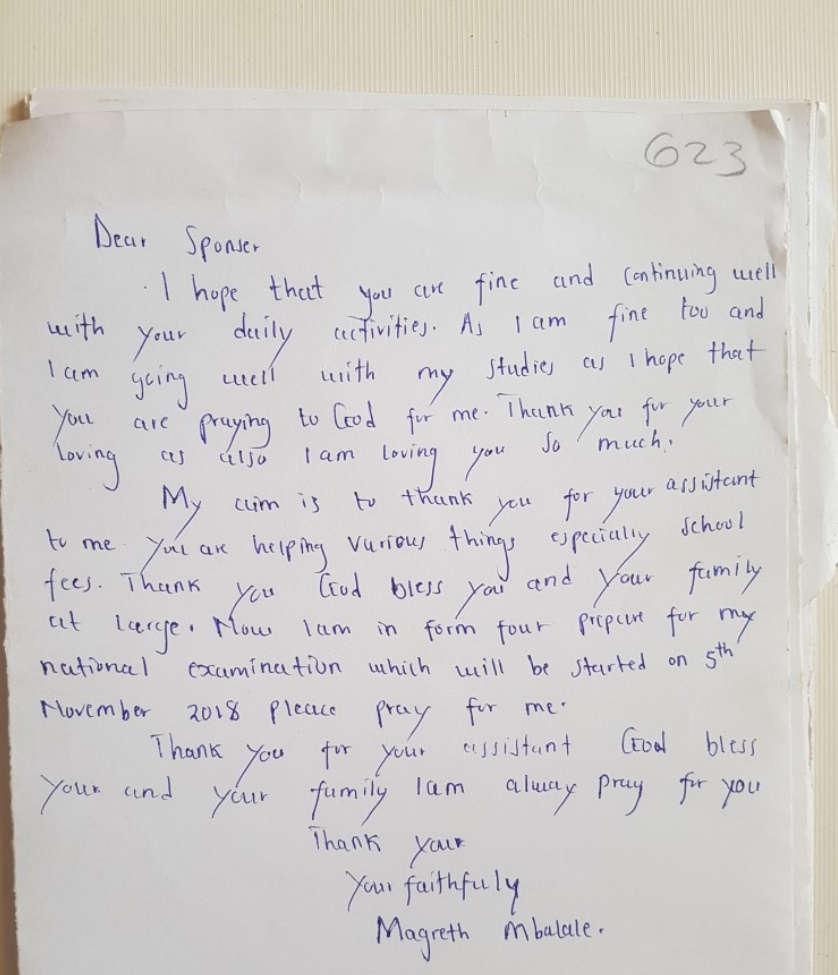 623
Dear Sponser
I hope that you are fine and Continuing well
with your daily activities. As I am fine too and
I am going well with my studies as I hope that
you are praying to God for me. Thank you for your
loving as also I am loving you so much.
My aim is to thank you for your assistant
to me. You are helping various things especially school
fees. Thank you God bless you and your family
at large. Now I am in form four prepare for my
national examination which will be started on 5th
November 2018 pleace pray for me.
Thank you for your assistant God bless
your and your family I am alway pray for you
Thank your
Your faithfuly
Magreth Mbalale.